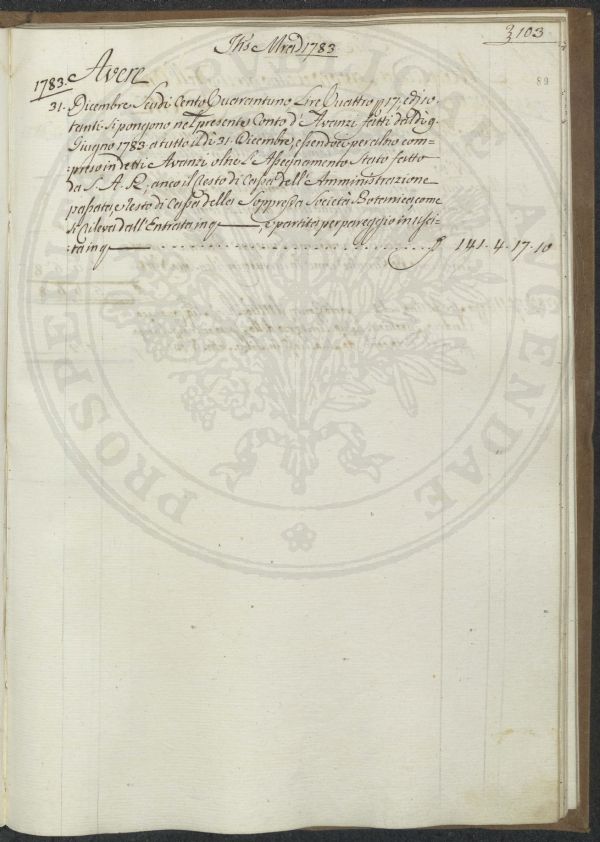 Jhs Mrā 1783
103
89
Avere
1783.
31. Dicembre Scudi Cento Quarantuno Lire Quattro p 17, e di 10
tanti si pongono nel presente Conto d'Avanzi fatti dal dì 9.
Giugno 1783 a tutto il dì 31. Dicembre, essendoci per altro com=
:preso in detti Avanzi oltre l'Assegnamento Stato fatto
da S. A. R. anco il Resto di Cassa dell'Amministrazione
passata e Resto di Cassa della Soppressa Società Botanica, come
si rileva dall'Entrata in q e partita per pareggio in Usci=
:ta in q 141. 4. 17. 10
PROSPERITATI AUGENDAE